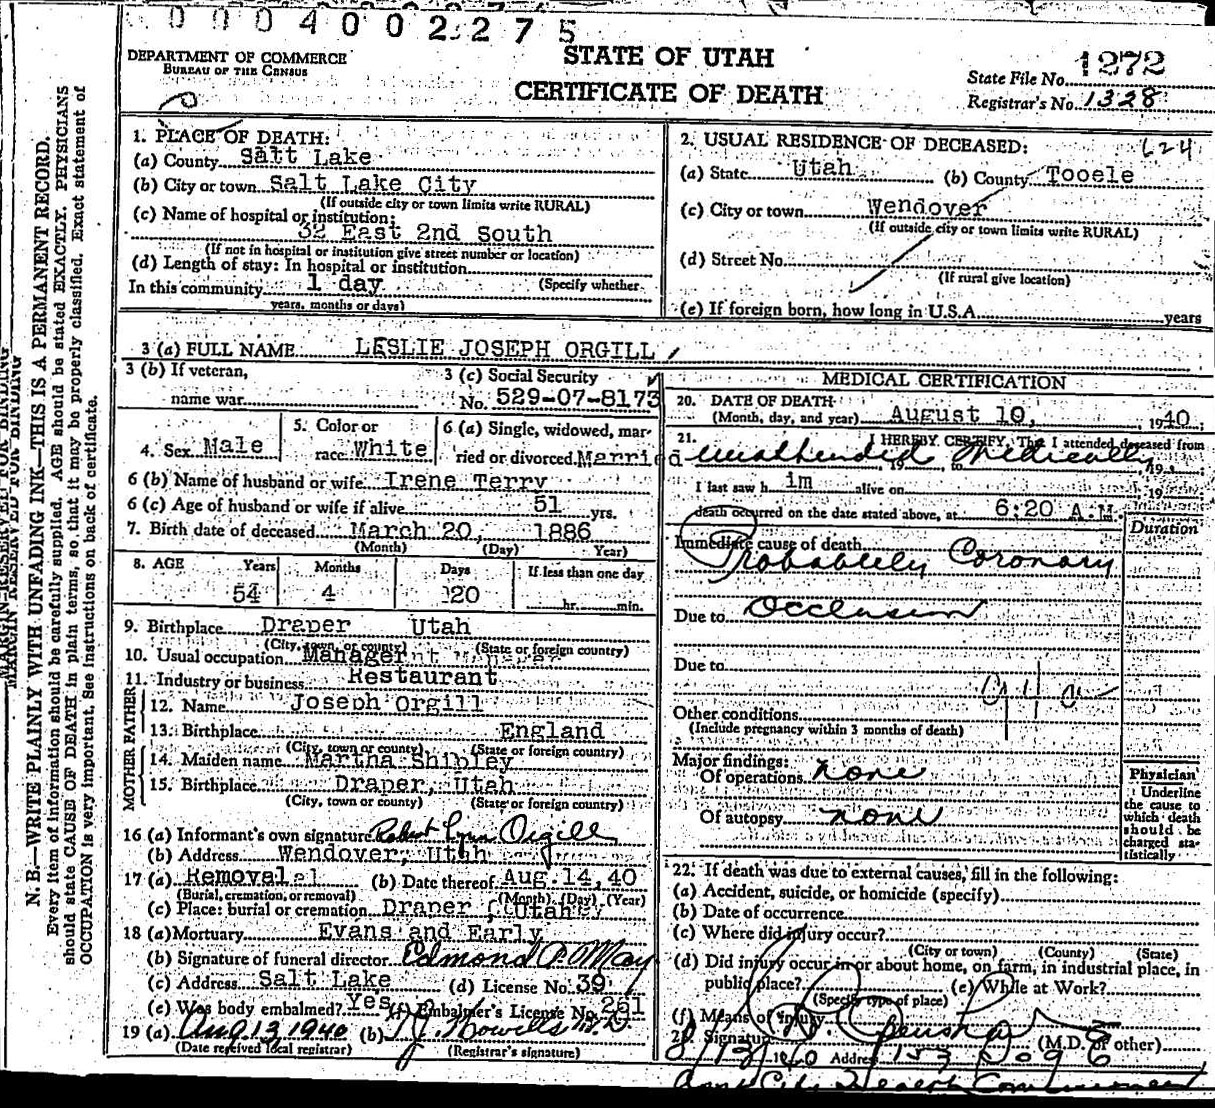 0004002275
DEPARTMENT OF COMMERCE
BUREAU OF THE CENSUS
STATE OF UTAH
CERTIFICATE OF DEATH
State File No. 1272
Registrar's No. 1328
1. PLACE OF DEATH:
(a) County Salt Lake
(b) City or town Salt Lake City
(If outside city or town limits write RURAL)
(c) Name of hospital or institution:
32 East 2nd South
(If not in hospital or institution give street number or location)
(d) Length of stay: In hospital or institution
In this community 1 day (Specify whether
years, months or days)
2. USUAL RESIDENCE OF DECEASED: 624
(a) State Utah (b) County Tooele
(c) City or town Wendover
(If outside city or town limits write RURAL)
(d) Street No.
(If rural give location)
(e) If foreign born, how long in U.S.A. years
3 (a) FULL NAME LESLIE JOSEPH ORGILL
3 (b) If veteran, name war
3 (c) Social Security No. 529-07-8173
4. Sex Male
5. Color or race White
6 (a) Single, widowed, married or divorced Married
6 (b) Name of husband or wife Irene Terry
6 (c) Age of husband or wife if alive 51 yrs.
7. Birth date of deceased March 20, 1886
(Month) (Day) Year)
8. AGE Years Months Days If less than one day
54 4 20 hr. min.
9. Birthplace Draper Utah
(City, town, or county) (State or foreign country)
10. Usual occupation Manager
11. Industry or business Restaurant
FATHER
12. Name Joseph Orgill
13. Birthplace England
(City, town or county) (State or foreign country)
MOTHER
14. Maiden name Martha Shipley
15. Birthplace Draper, Utah
(City, town or county) (State or foreign country)
16 (a) Informant's own signature Robert Lynn Orgill
(b) Address Wendover, Utah
17 (a) Removal (b) Date thereof Aug. 14, 40
(Burial, cremation, or removal) (Month) (Day) (Year)
(c) Place: burial or cremation Draper, Utah
18 (a) Mortuary Evans and Early
(b) Signature of funeral director Edmond P. McCay
(c) Address Salt Lake (d) License No. 39
(e) Was body embalmed? Yes (f) Embalmer's License No. 261
19 (a) Aug. 13, 1940 (b) Howells M.D.
(Date received local registrar) (Registrar's signature)
MEDICAL CERTIFICATION
20. DATE OF DEATH
(Month, day, and year) August 10, 1940
21. I HEREBY CERTIFY, That I attended deceased from
unattended Medically 19 to 19
I last saw h im alive on 19
death occurred on the date stated above, at 6:20 A.M.
Duration
Immediate cause of death
Probablely Coronary
Due to Occlusion
Due to
94a
Other conditions
(Include pregnancy within 3 months of death)
Major findings:
Of operations none
Of autopsy none
Physician
Underline
the cause to
which death
should be
charged sta-
tistically
22. If death was due to external causes, fill in the following:
(a) Accident, suicide, or homicide (specify)
(b) Date of occurrence
(c) Where did injury occur?
(City or town) (County) (State)
(d) Did injury occur in or about home, on farm, in industrial place, in
public place? (e) While at Work?
(Specify type of place)
(f) Means of injury
23. Signature (M.D. or other)
8/13/1940 Address
City Health Commissioner
N. B.—WRITE PLAINLY WITH UNFADING INK—THIS IS A PERMANENT RECORD.
Every item of information should be carefully supplied. AGE should be stated EXACTLY. PHYSICIANS
should state CAUSE OF DEATH in plain terms, so that it may be properly classified. Exact statement of
OCCUPATION is very important. See instructions on back of certificate.
MARGIN RESERVED FOR BINDING